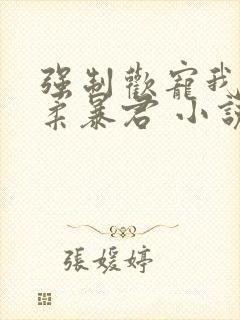 强制歡寵我
柔暴君 小說
張媛婷